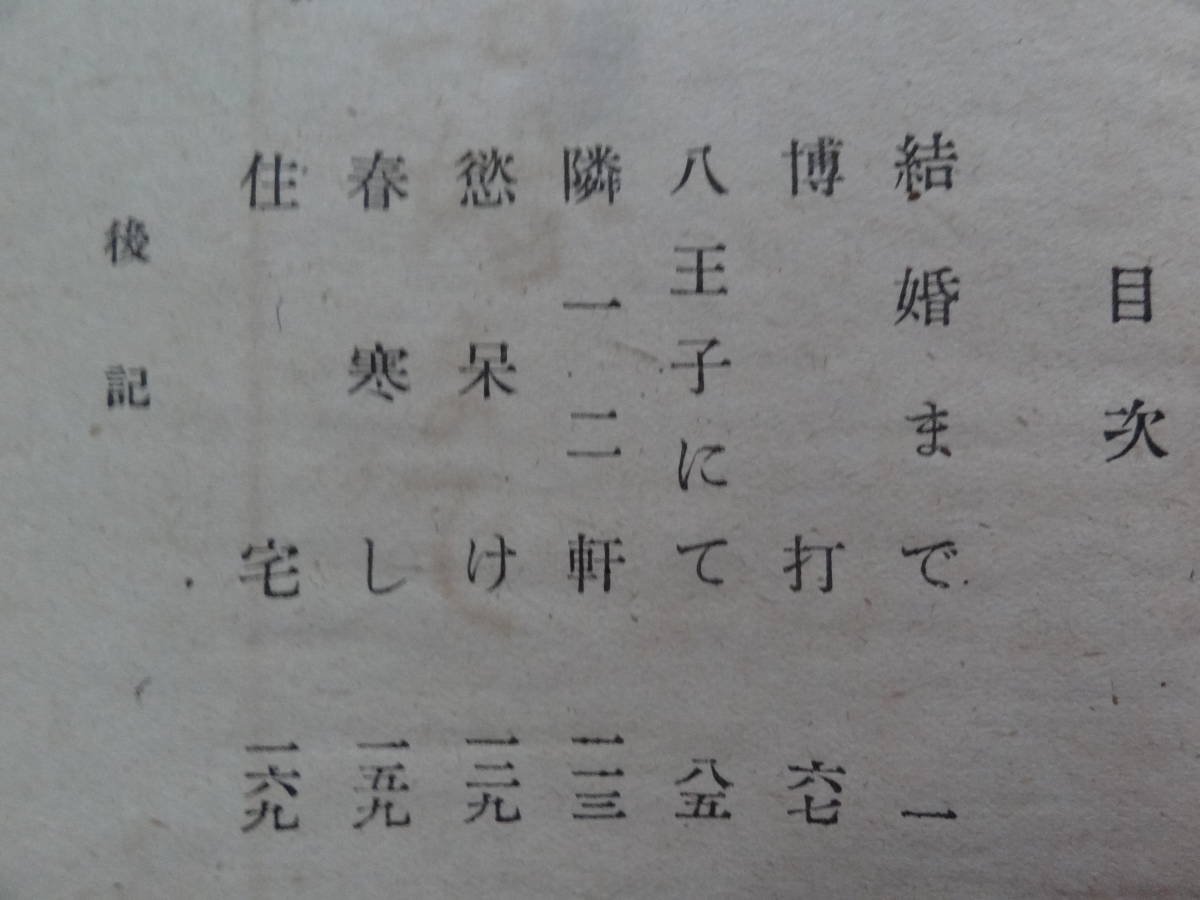 目次
結婚まで 一
博打 六七
八王子にて 八五
隣一二軒 一一三
慾呆け 一二九
春寒し 一五九
住宅 一六九
後記